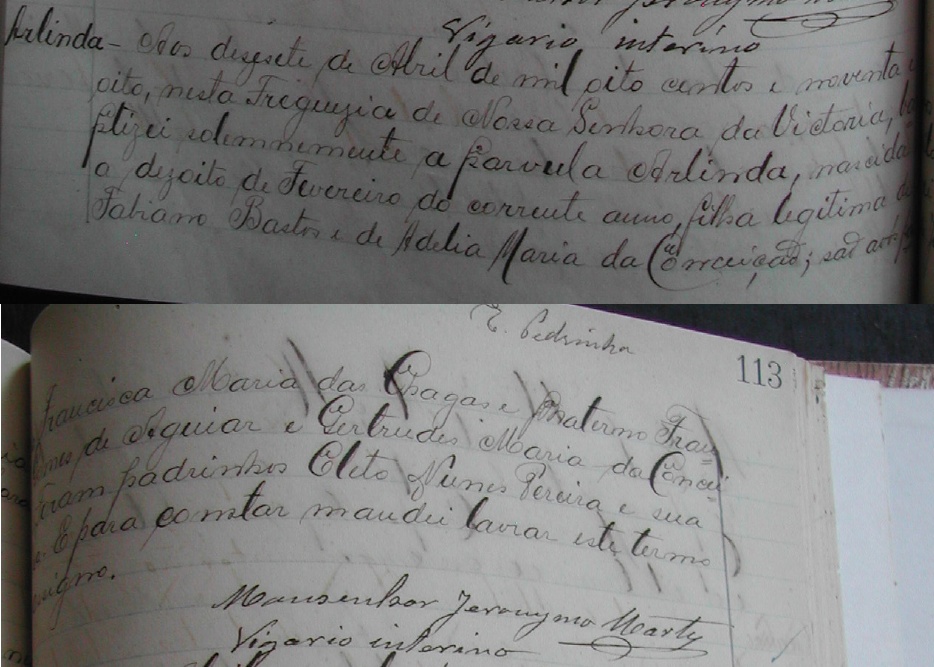 Vigario interino
Arlinda - Aos desesete de Abril de mil oito centos e noventa e
oito, nesta Freguezia de Nossa Senhora da Victoria, ba
ptizei solemnemente a parvula Arlinda, nascida
a dezoito de Fevereiro do corrente anno, filha legitima de
Fabiano Bastos e de Adelia Maria da Conceição; são avós
E. Pedrinha
113
Francisca Maria das Chagas e materno Fran=
de Aguiar e Gertrudes Maria da Concei=
foram padrinhos Cleto Nunes Pereira e sua
E para constar mandei lavrar este termo
signo.
Monsenhor Jeronymo Marty
Vigario interino